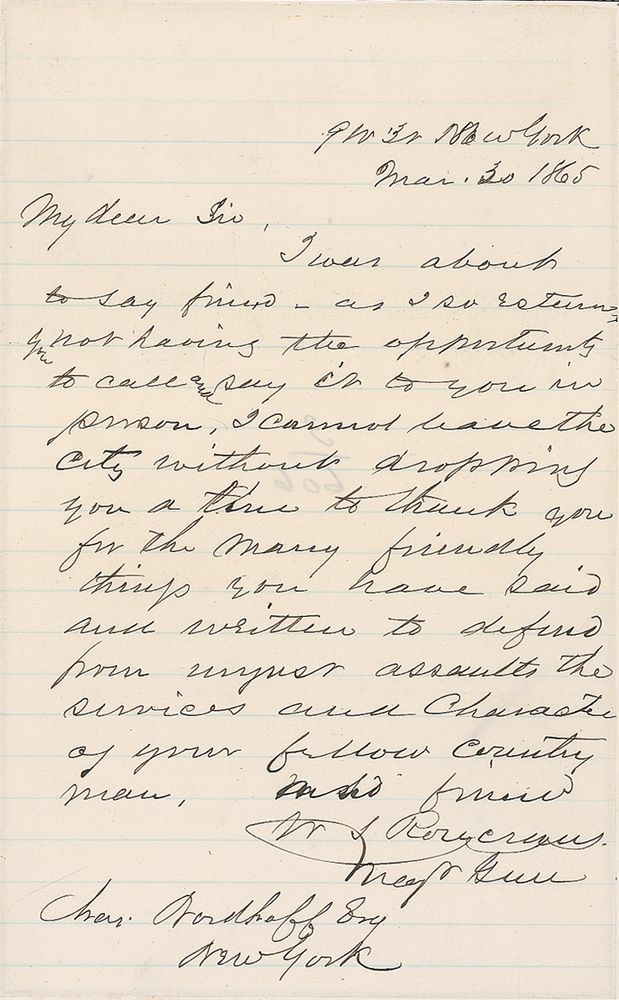 New York
Mar. 30 1865
My dear Sir,
I was about
to say friend - as I so esteem
you not having the opportunity
to call and say it to you in
person, I cannot leave the
city without dropping
you a line to thank you
for the many friendly
things you have said
and written to defend
from unjust assaults the
services and Character
of your fellow country
man, and friend
W S Rosecrans.
Maj Genl
Chas. Nordhoff Esq
New York